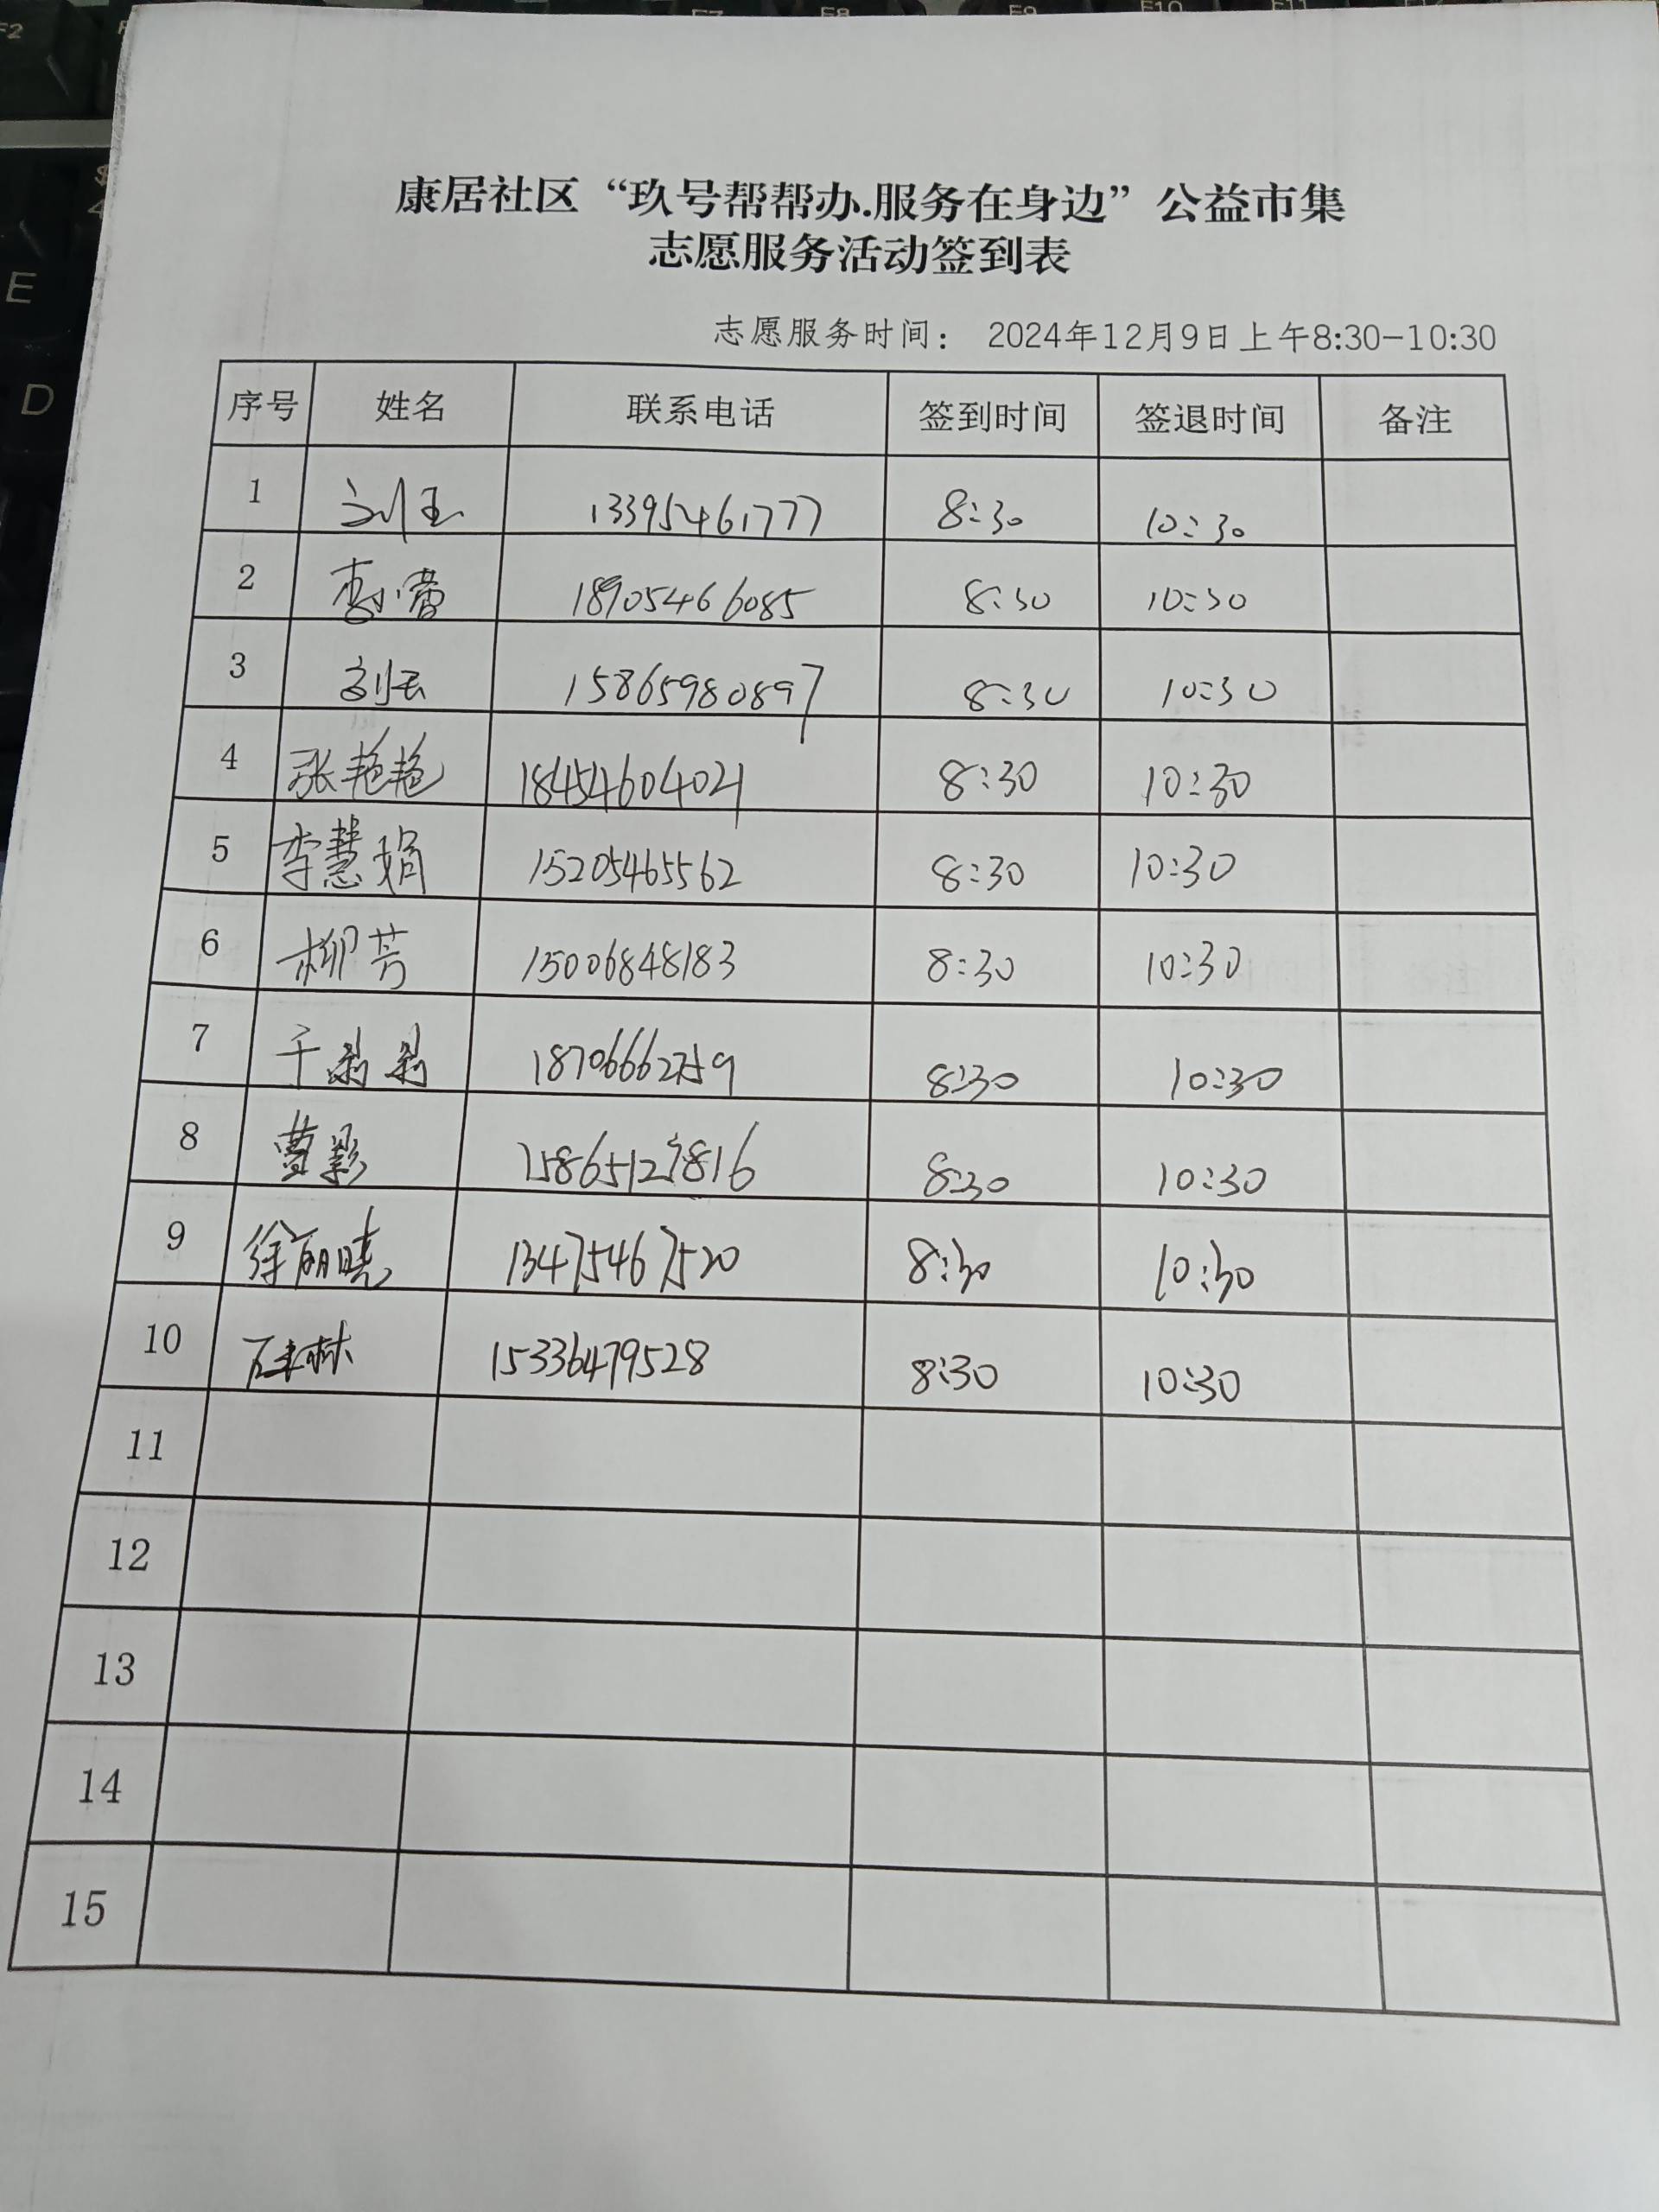 康居社区“玖号帮帮办.服务在身边”公益市集
志愿服务活动签到表
志愿服务时间： 2024年12月9日上午8:30-10:30
序号 姓名 联系电话 签到时间 签退时间 备注
1 刘玉 13395461777 8:30 10:30
2 18905466085 8:30 10:30
3 15865980897 8:30 10:30
4 张艳艳 18454604021 8:30 10:30
5 李慧娟 15205465562 8:30 10:30
6 柳芳 15006848183 8:30 10:30
7 8:30 10:30
8 曹影 8:30 10:30
9 徐丽晓 13475467520 8:30 10:30
10 15336479528 8:30 10:30
11
12
13
14
15
E
D
F2